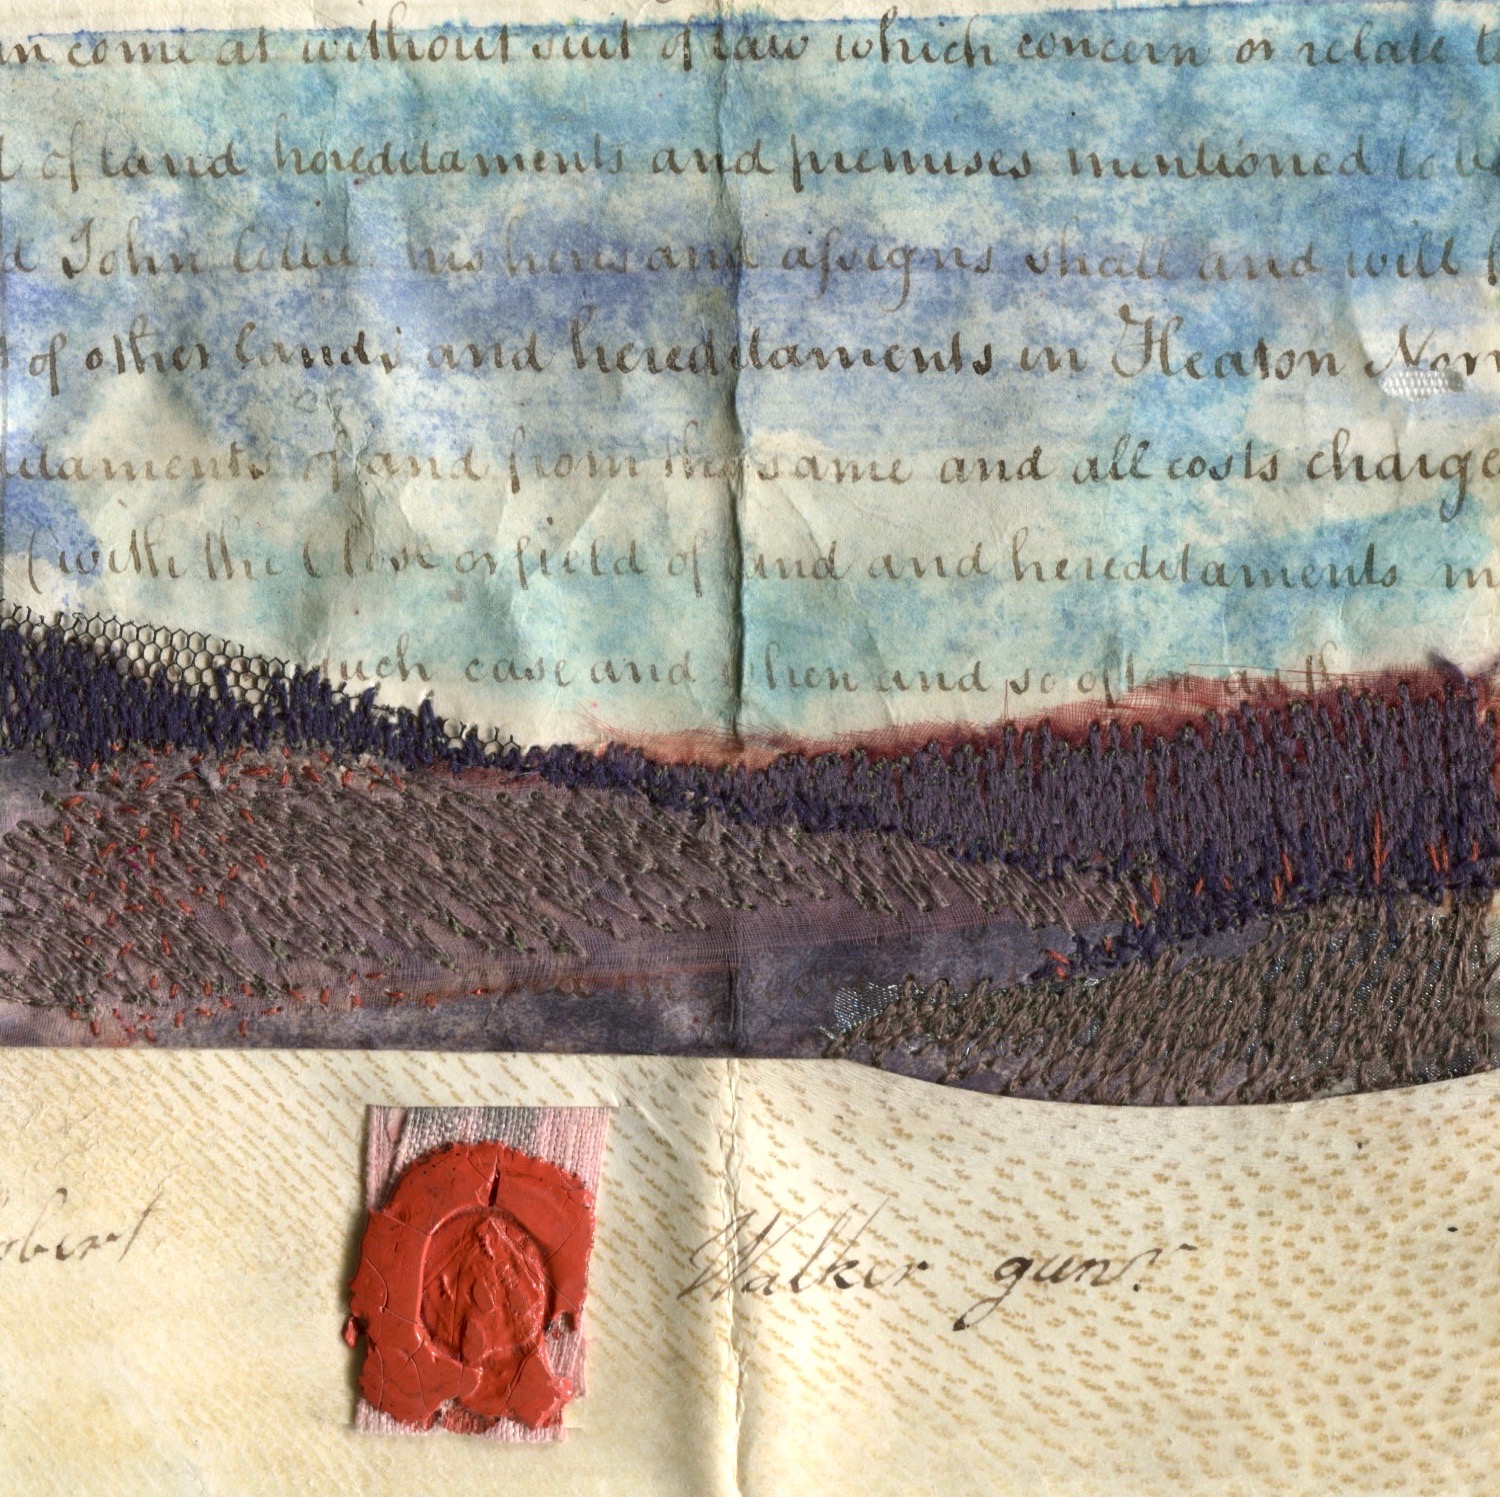 come at without suit of law which concern or relate
of land hereditaments and premises mentioned to
John his heirs and assigns shall and will
of other lands and hereditaments in Heaton Nor
itaments of and from the same and all costs charge
(with the Close or field of land and hereditaments
such case and when and so often as th
obert Walker gunr.